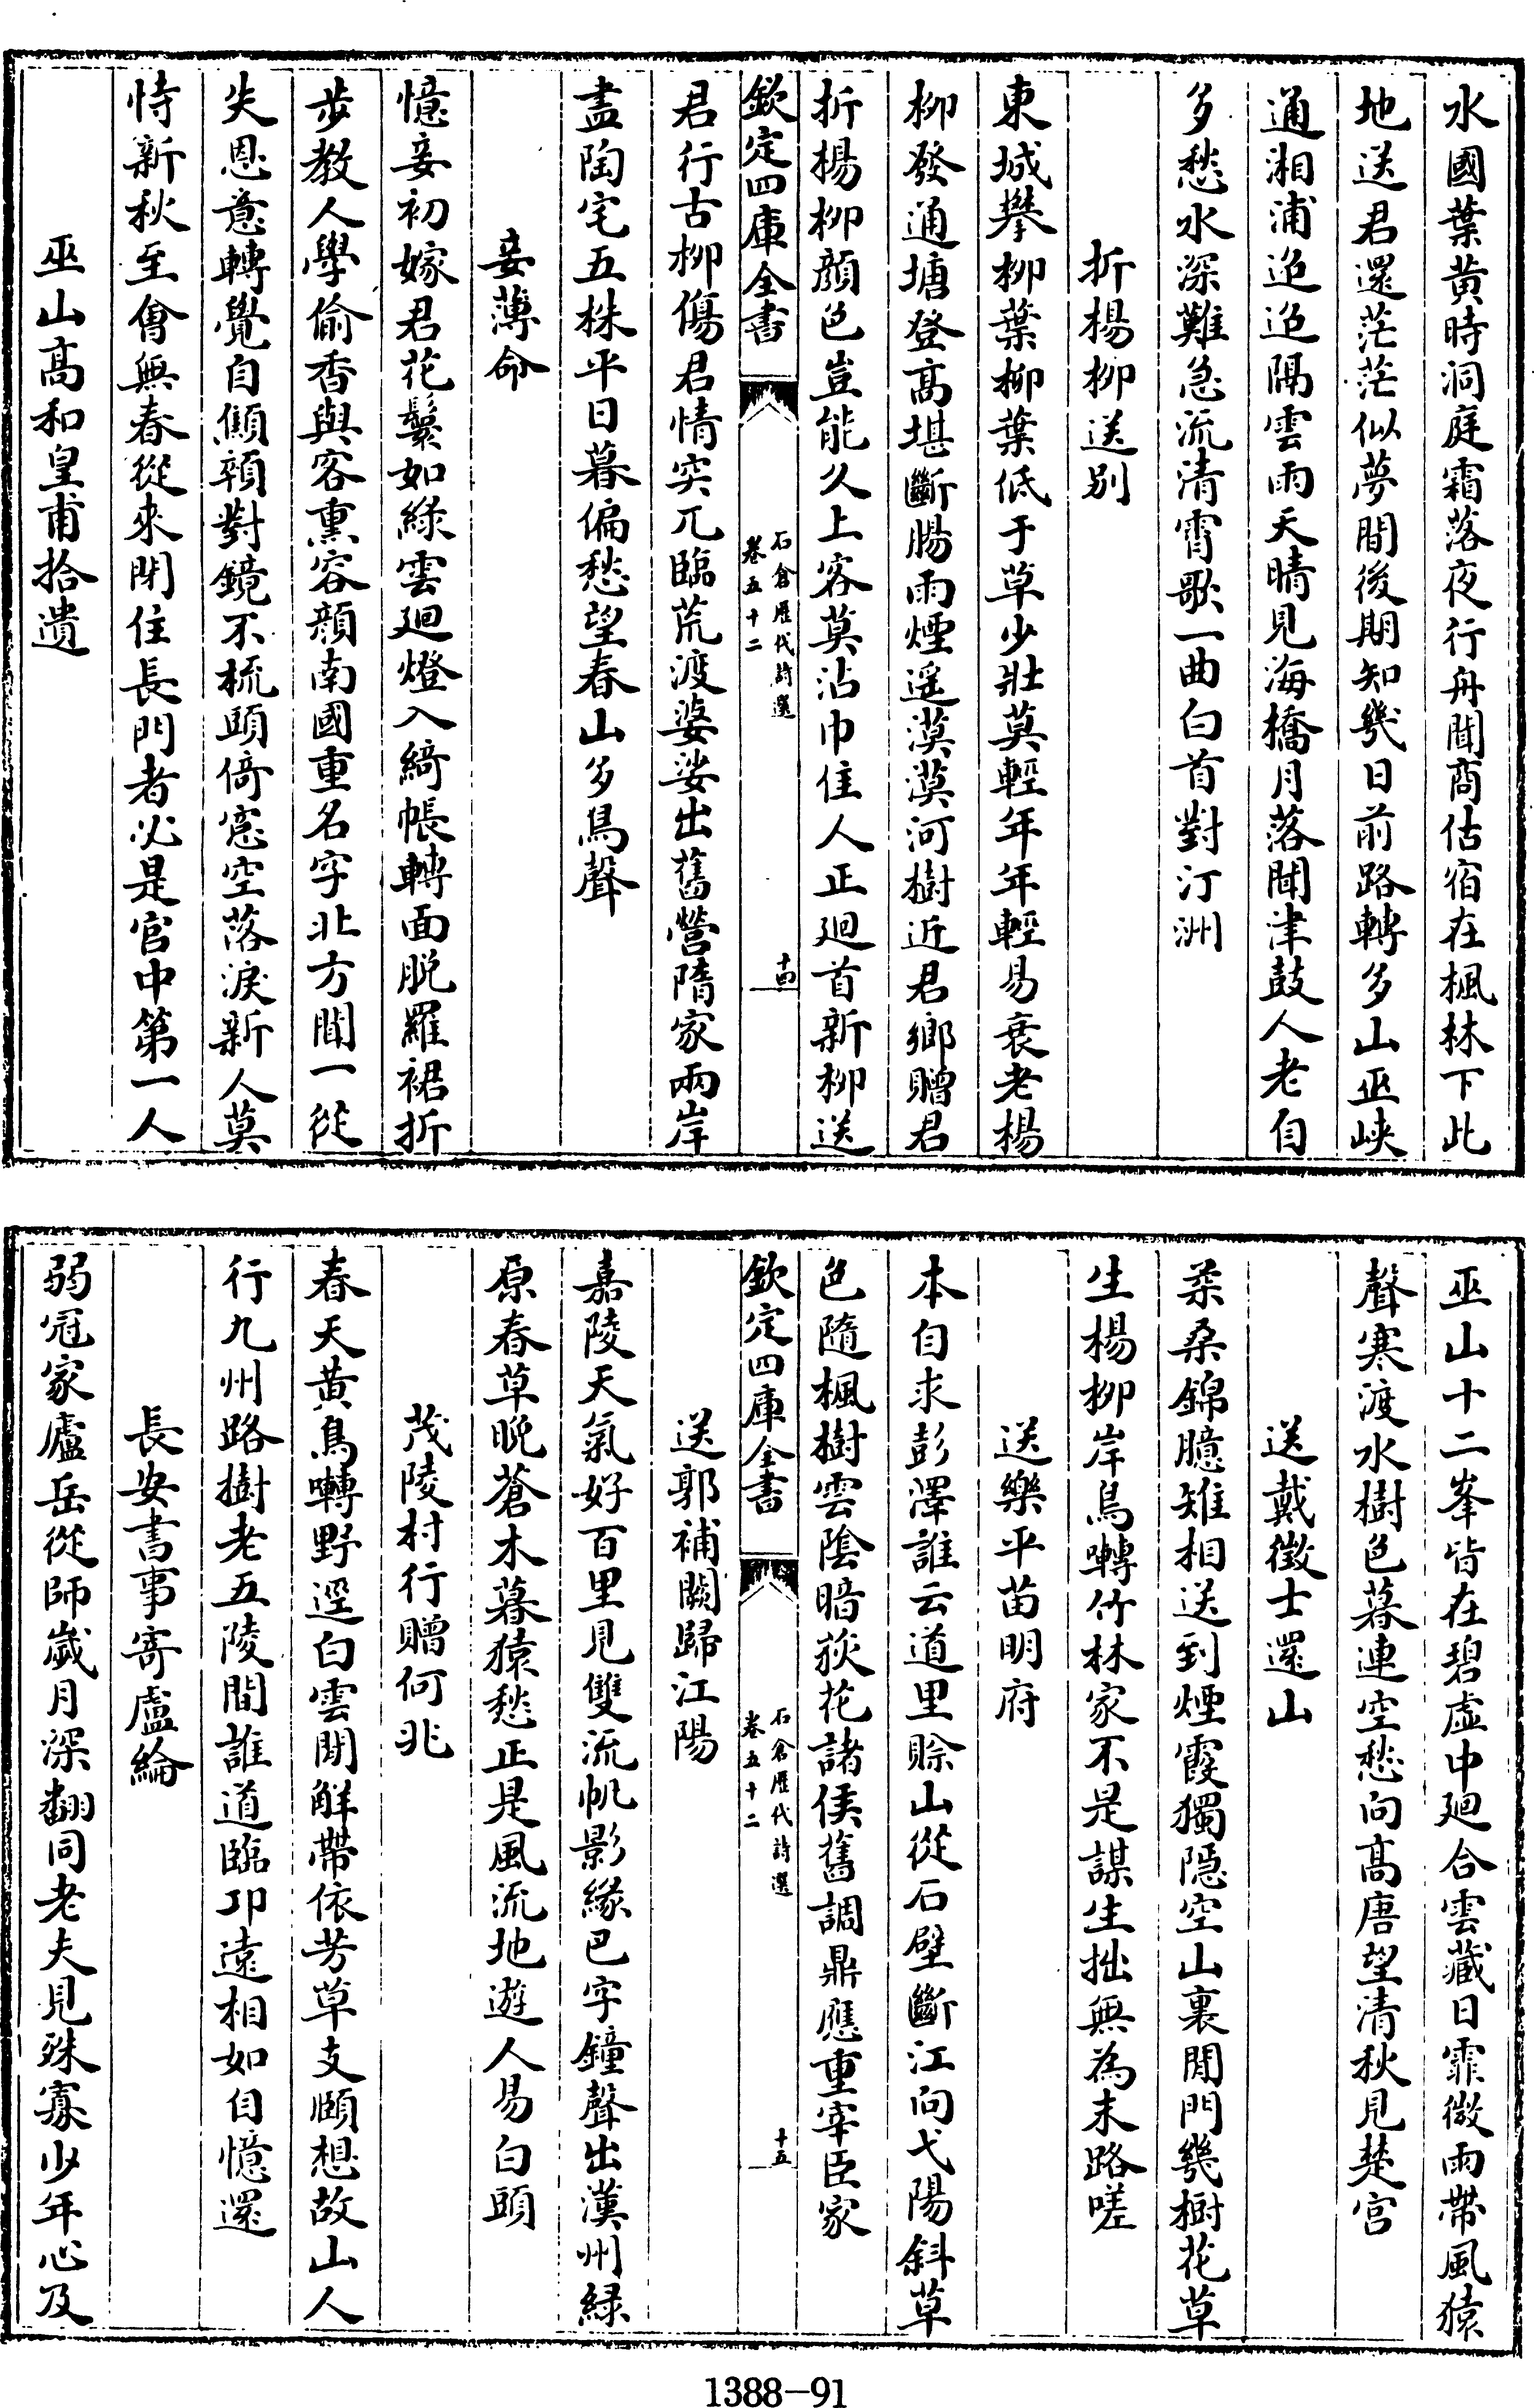 水國葉黄時洞庭霜落夜行舟聞商估宿在楓林下此
地送君還茫茫似夢間後期知幾日前路轉多山巫峽
通湘浦迢迢隔雲雨天晴見海橋月落聞津鼓人老自
多愁水深難急流清霄歌一曲白首對汀洲
折楊柳送别
東城攀柳葉柳葉低于草少壯莫輕年年年輕易衰老楊
柳發通塘登高堪斷腸雨煙遥漠漠河樹近君鄉贈君
折楊柳顔色豈能久上客莫沾巾佳人正廻首新柳送
欽定四庫全書
石倉歷代詩選
卷五十二
十四
君行古柳傷君情突兀臨荒渡婆娑出舊營隋家兩岸
盡陶宅五株平日暮偏愁望春山多鳥聲
妾薄命
憶妾初嫁君花鬟如綠雲廻燈入綺帳轉面脱羅裙折
步教人學偷香與客熏容顔南國重名字北方聞一從
失恩意轉覺自顦顇對鏡不梳頭倚窻空落淚新人莫
恃新秋至會無春從來閉住長門者必是官中第一人
巫山高和皇甫拾遺
巫山十二峯皆在碧虚中廻合雲藏日霏微雨帶風猿
聲寒渡水樹色暮連空愁向高唐望清秋見楚宫
送戴徴士還山
柔桑錦臆雉相送到煙霞獨隐空山裏閒門幾樹花草
生楊柳岸鳥囀竹林家不是謀生拙無為末路嗟
送樂平苗明府
本自求彭澤誰云道里賒山從石壁斷江向弋陽斜草
色隨楓樹雲陰暗荻花諸侯舊調鼎應重宰臣家
欽定四庫全書
石倉歷代詩選
卷五十二
十五
送郭補闕歸江陽
嘉陵天氣好百里見雙流帆影緣巴字鐘聲出漢州綠
原春草晩蒼木暮猿愁正是風流地遊人易白頭
茂陵村行贈何兆
春天黄鳥囀野逕白雲閒解帶依芳草支頤想故山人
行九州路樹老五陵間誰道臨卭遠相如自憶還
長安書事寄盧綸
弱冠家廬岳從師嵗月深翻同老夫見殊寡少年心及
1388-91